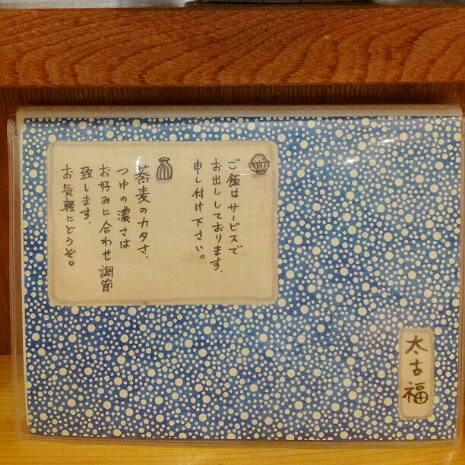 ご飯はサービスで
お出ししております、
申し付け下さい。
蕎麦のカタさ、
つゆの濃さは
お好みに合わせ調節
致します、
お気軽にどうぞ。
太古福